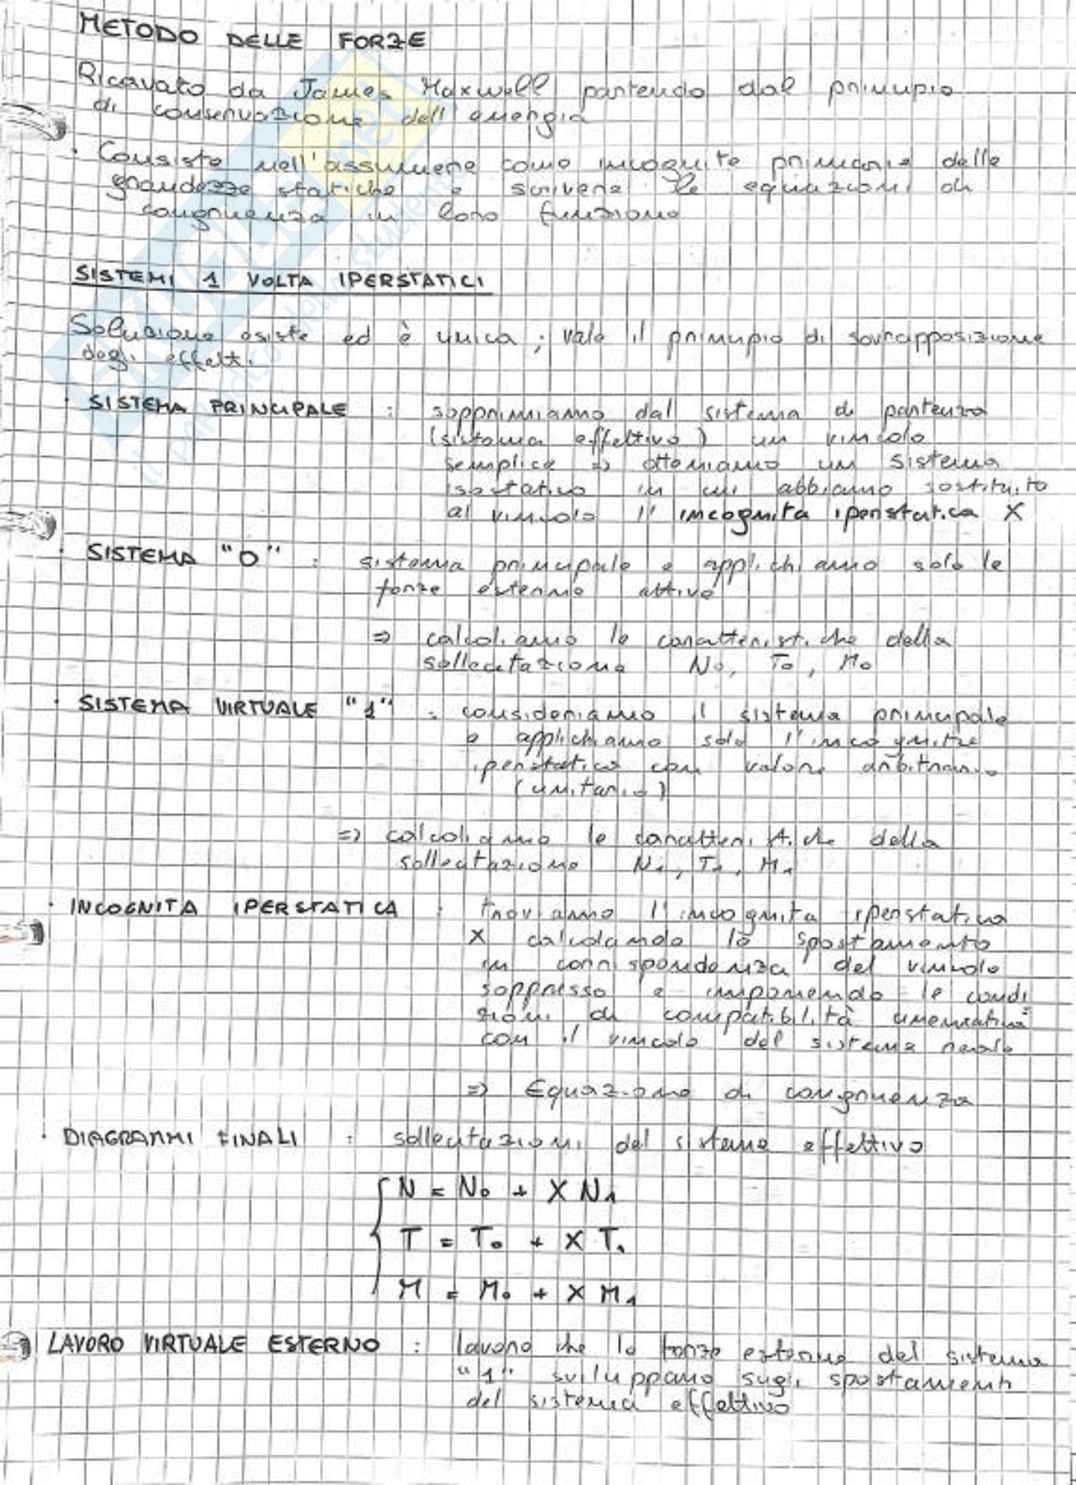 METODO DELLE FORZE
Ricavato da James Maxwell partendo dal principio
di conservazione dell'energia
· Consiste nell'assumere come incognite primarie delle
grandezze statiche e scrivere le equazioni di
congruenza in loro funzione
SISTEMI 1 VOLTA IPERSTATICI
Soluzione esiste ed è unica ; vale il principio di sovrapposizione
degli effetti
· SISTEMA PRINCIPALE : sopprimiamo dal sistema di partenza
(sistema effettivo) un vincolo
semplice => otteniamo un sistema
isostatico in cui abbiamo sostituito
al vincolo l'incognita iperstatica X
· SISTEMA "0" : sistema principale e applichiamo solo le
forze esterne attive
=> calcoliamo le caratteristiche della
sollecitazione N0, T0, M0
· SISTEMA VIRTUALE "1" : consideriamo il sistema principale
e applichiamo solo l'incognita
iperstatica con valore arbitrario
(unitario)
=> calcoliamo le caratteristiche della
sollecitazione N1, T1, M1
· INCOGNITA IPERSTATICA : troviamo l'incognita iperstatica
X calcolando lo spostamento
in corrispondenza del vincolo
soppresso e imponendo le condi
zioni di compatibilità cinematica
con il vincolo del sistema reale
=> Equazione di congruenza
· DIAGRAMMI FINALI : sollecitazioni del sistema effettivo
N = N0 + X N1
T = T0 + X T1
M = M0 + X M1
LAVORO VIRTUALE ESTERNO : lavoro che le forze esterne del sistema
"1" sviluppano sugli spostamenti
del sistema effettivo